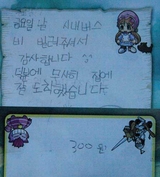 금요일 날 시내버스
비 빌려주셔서
감사합니다
덕분에 무사히 집에
잘 도착했습니다
300원